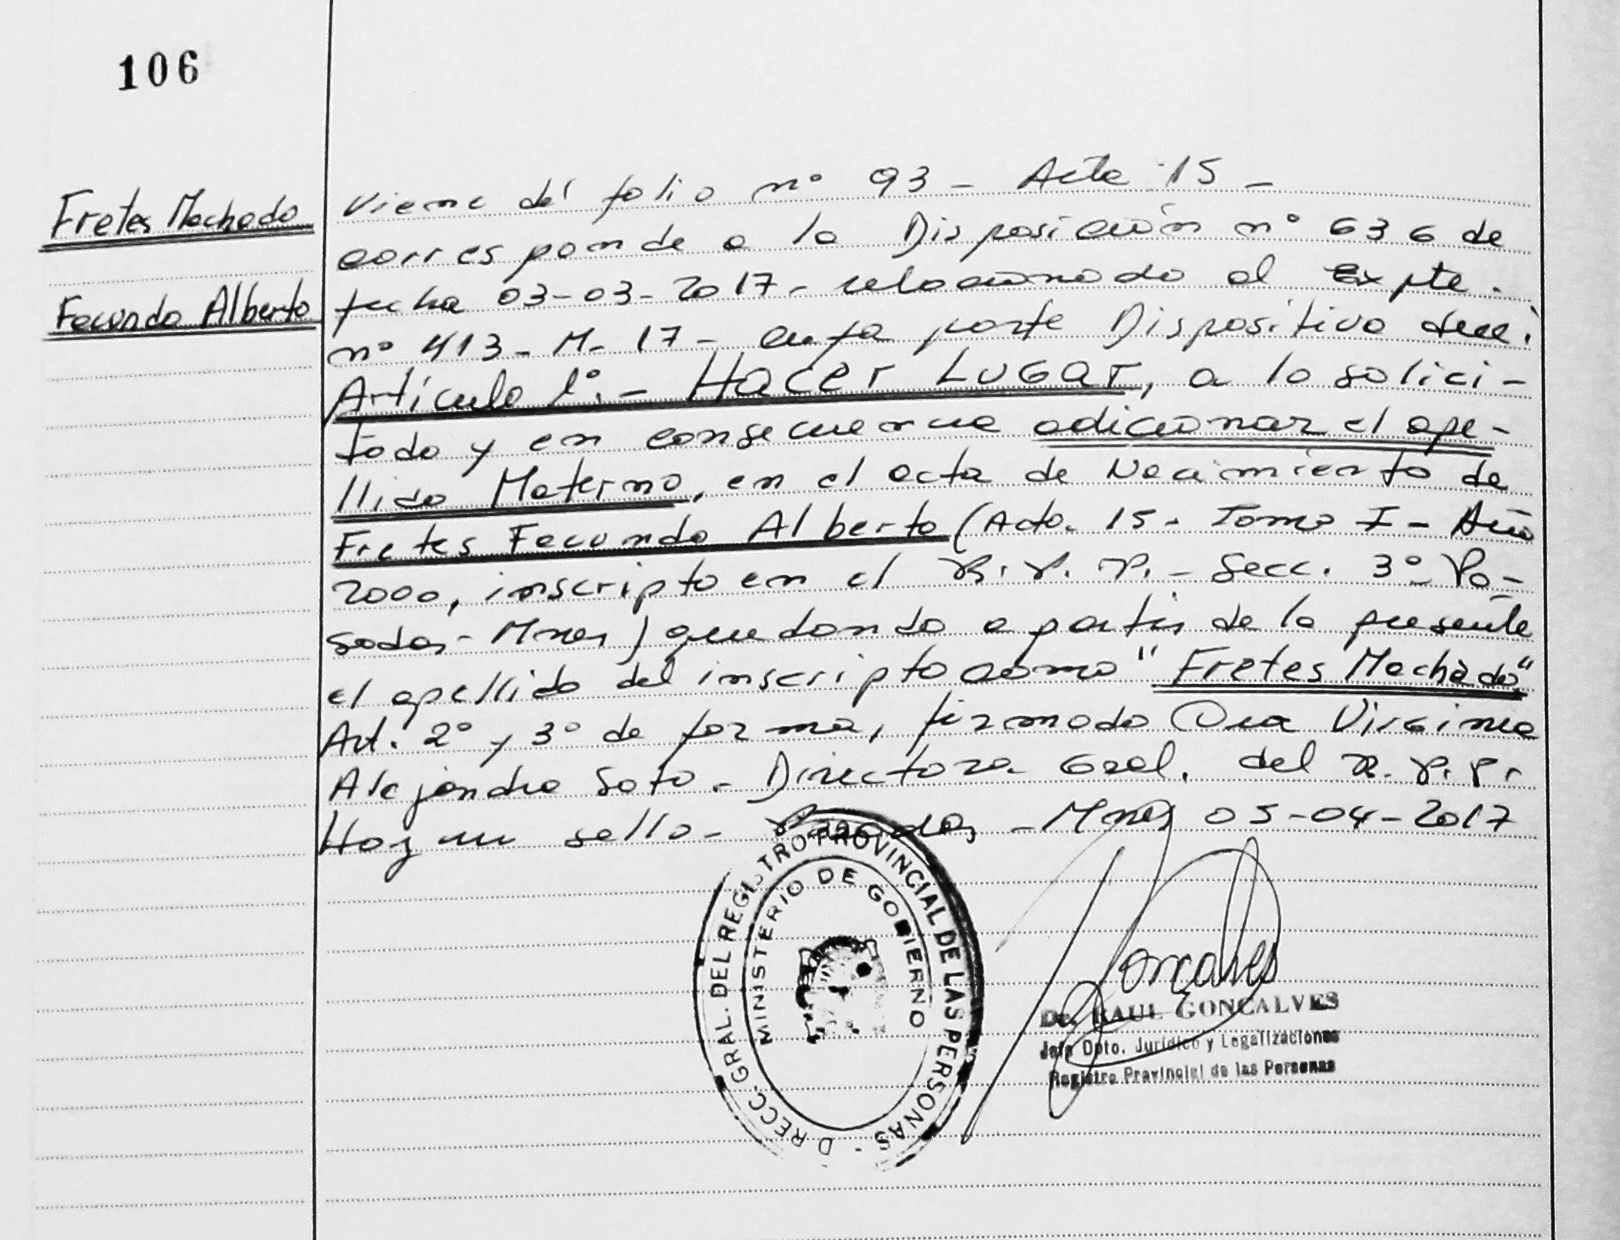 106
Fretes Machado
Facundo Alberto
Viene del folio nº 93 - Acta 15 -
corresponde a la Disposición nº 636 de
fecha 03-03-2017 - relacionado al Expte.
nº 413 - M - 17 - cuya parte Dispositiva dice:
Artículo 1º. - HACER LUGAR, a lo solici-
tado y en consecuencia adicionar el ape-
llido Materno, en el acta de Nacimiento de
Fretes Facundo Alberto (Acta. 15 - Tomo I - Año
2000, inscripto en el R. P. P. - Secc. 3º Po-
sadas - Mnes) quedando a partir de la presente
el apellido del inscripto como "Fretes Machado"
Art. 2º y 3º de forma, firmado Dra Virginia
Alejandra Soto - Directora Gral. del R. P. P.
Hay un sello - Posadas, - Mnes 05-04-2017
DIRECC. GRAL. DEL REGISTRO PROVINCIAL DE LAS PERSONAS -
MINISTERIO DE GOBIERNO
Gonçalves
Dr. RAUL GONCALVES
Jefe Dpto. Jurídico y Legalizaciones
Registro Provincial de las Personas